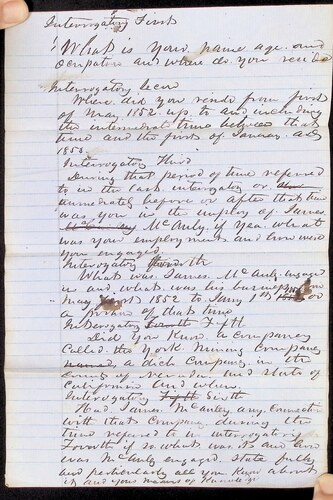 Interrogatory First
What is your name age and
Ocupation and where do you reside
Interrogatory Secon
Where did you reside from first
of May 1852 up to and including
the intermediate time between that
time and the first of January AD
1853
Interrogatory Third
During that period of time referred
to in the last interogatory or
immediately before or after that time
was you in the employ of James
McAnly, if yea, what
was your employment and how were
you engaged
Interogatory Fourth
What was James McAnly engaged
in and what was his business from
May 1852 to Jany 1st or
a portion of that time
Interogatory Fifth
Did you Know a company
Called the York Mining Company
a ditch Company, in the
County of Nevada and State of
California and when
Interogatory Sixth
Had James McAnly any connection
with that Company during the
time refered to in interrogatory
Fourth, if so what was it and how
was McAnly engaged. State fully
and particularly all you Know about
it and your means of Knowledge